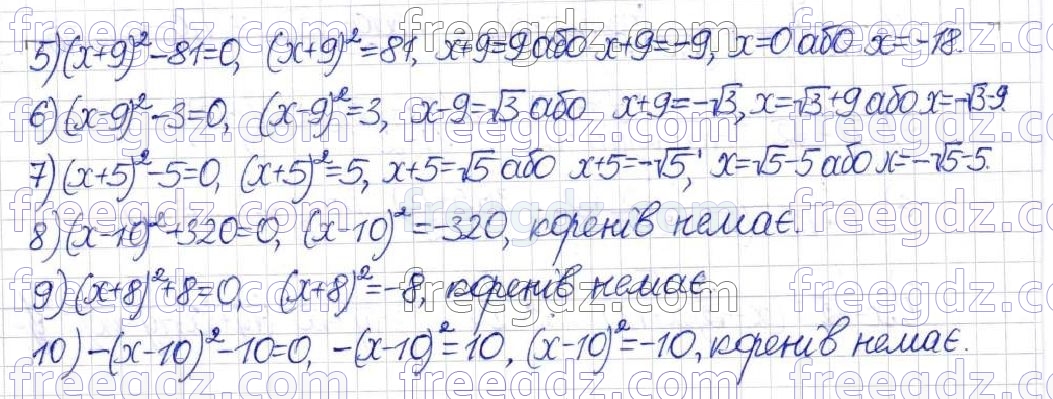 5) (x+9)²-81=0, (x+9)²=81, x+9=9 або x+9=-9, x=0 або x=-18.
6) (x-9)²-3=0, (x-9)²=3, x-9=√3 або x+9=-√3, x=√3+9 або x=-√3-9.
7) (x+5)²-5=0, (x+5)²=5, x+5=√5 або x+5=-√5, x=√5-5 або x=-√5-5.
8) (x-10)²+320=0, (x-10)²=-320, коренів немає.
9) (x+8)²+8=0, (x+8)²=-8, коренів немає.
10) -(x-10)²-10=0, -(x-10)²=10, (x-10)²=-10, коренів немає.
freegdz.com